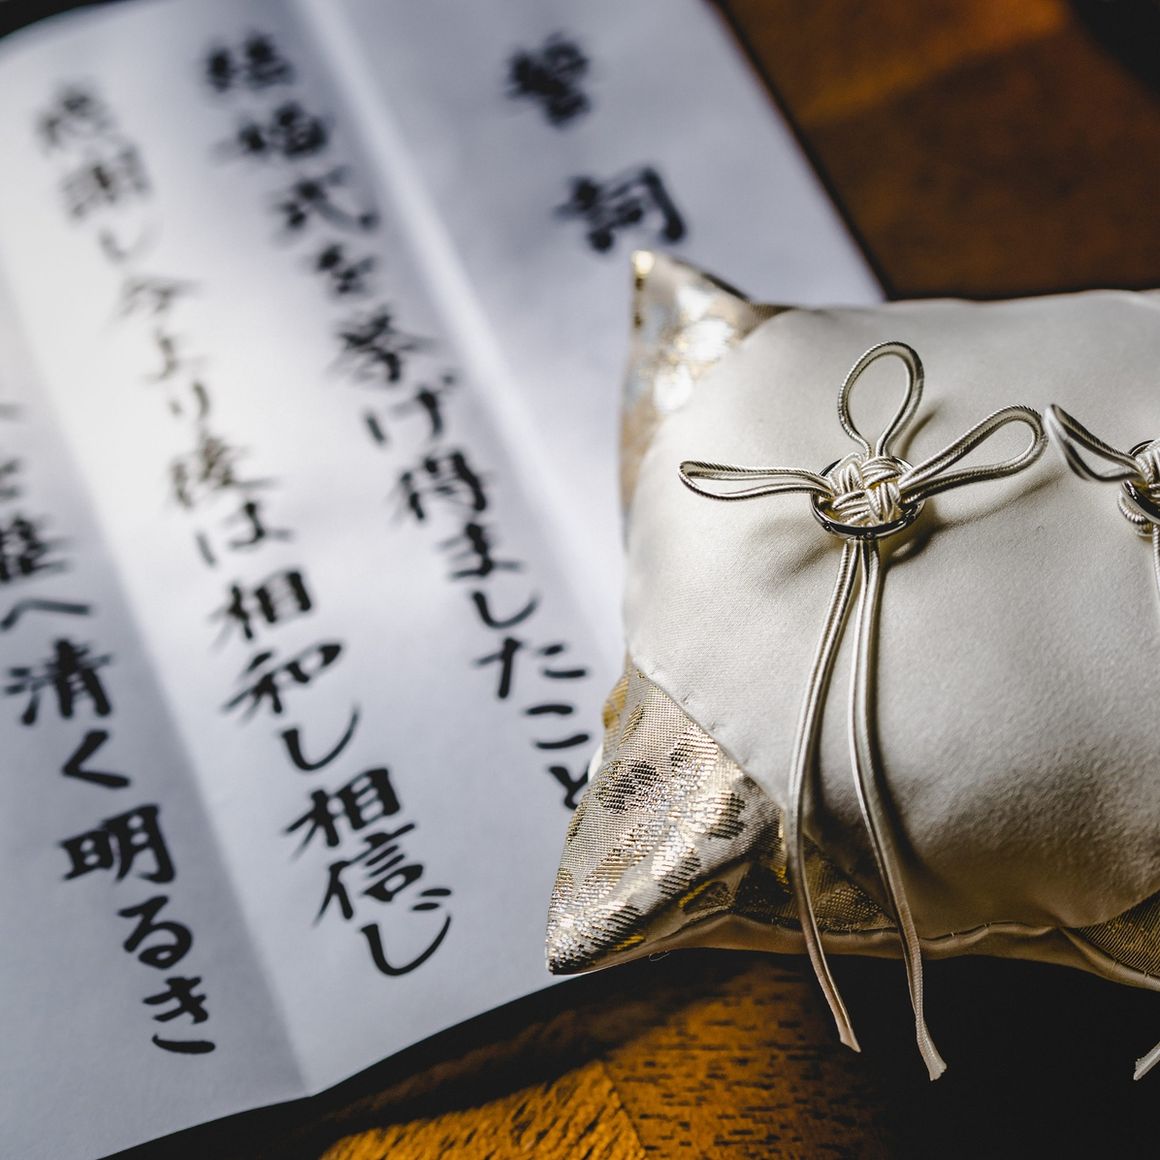 誓詞
結婚式を挙げ得ましたこと
感謝し今より後は相和し相信じ
へ清く明るき